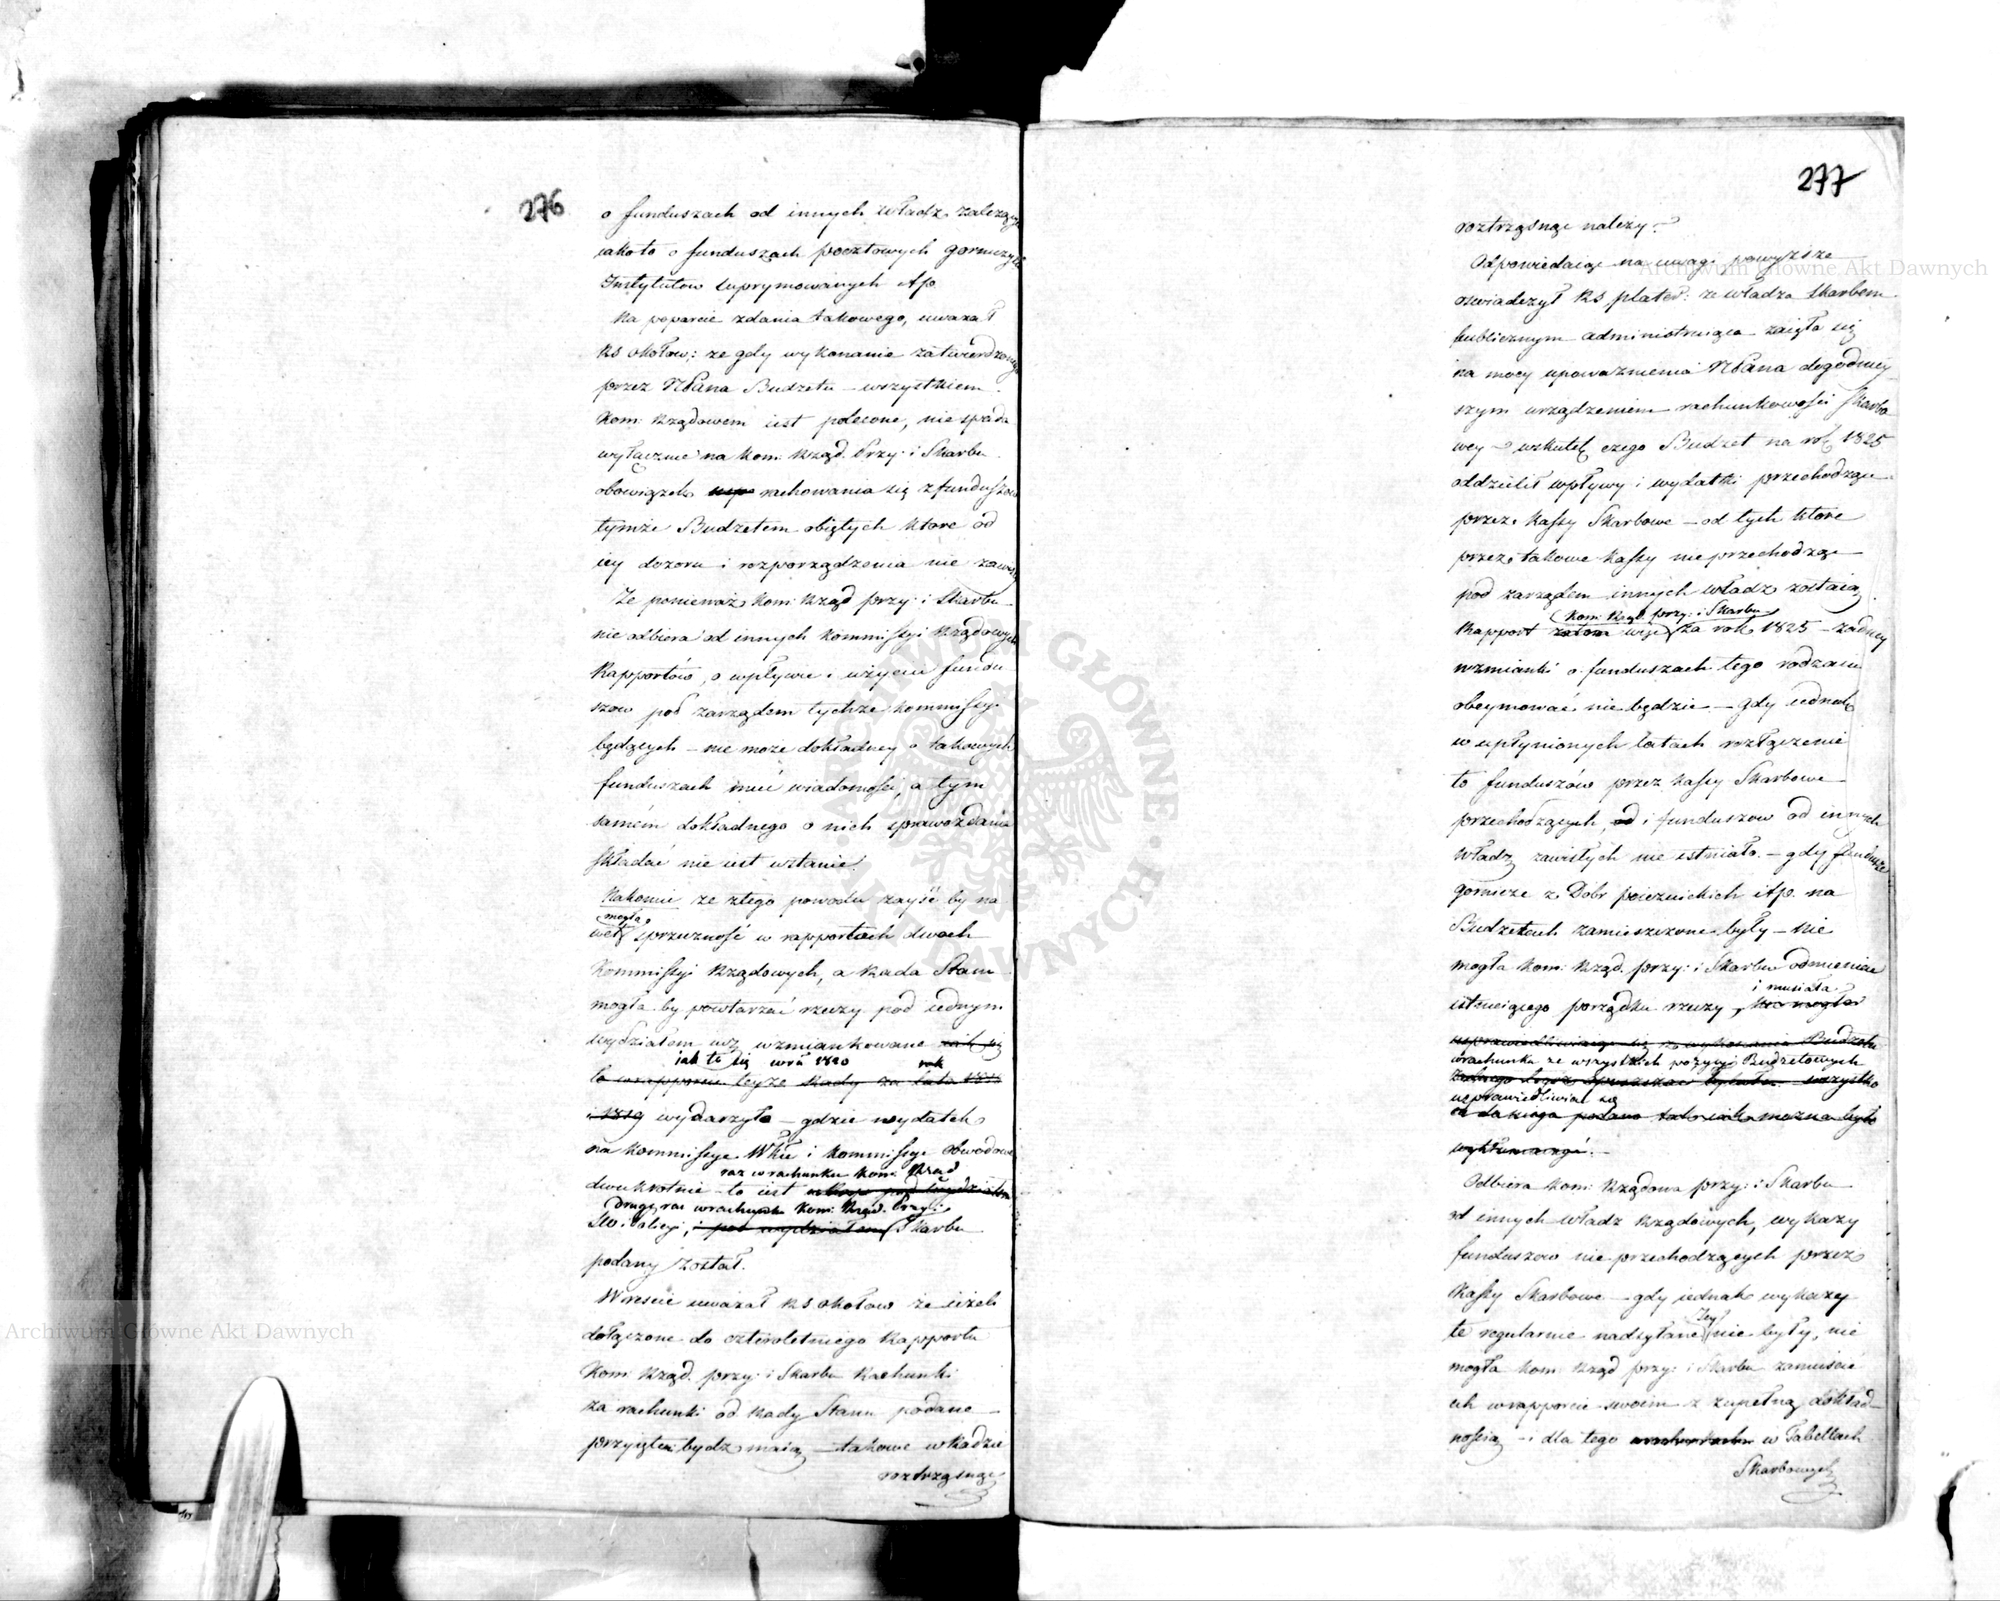 276
o funduszach od innych Władz zależący
iakoto o funduszach pocztowych gorniczych
Instytutow suprymowanych itp.
Na poparcie zdania takowego, uważał
RS Okołow: że gdy wykonanie zatwierdzonego
przez NPana Budżetu – wszystkiem
Kom: Rządowem iest polecone, nie spada
wyłącznie na Kom: Rząd. Przy: i Skarbu
obowiązek rachowania się z funduszow
tymże Budżetem obiętych które od
iey dozoru i rozporządzenia nie zawisły
Że ponieważ Kom: Rząd przy: i Skarbu
nie odbiera od innych Kommissyi Rządowych
Rapportów, o wpływie i użyciu fundu
szow pod zarządem tychże Kommissyi
będących – nie może dokładney o takowych
funduszach mieć wiadomości, a tym
samem dokładnego o nich sprawozdania
składać nie iest wstanie.
Nakoniec że ztego powodu zayść by na
mogła
wet sprzeczność w rapportach dwoch
Kommissyi Rządowych, a Rada Stanu
mogła by powtarzać rzeczy pod iednym
wydziałem iuż wzmiankowane iak się
iak to się wrok 1820
to wrapporcie teyże Rady za lata
i 1819 wydarzyło – gdzie wydatek
na Kommissye Wkie i Kommissye Obwodowe
raz w rachunku Kom: Rząd
dwukrotnie – to iest
drugi raz wrachunk Kom: Rząd. Przy: i
i pod wydziałem Skarbu
podany został.
Wreszcie uważał RS Okołow że ieżeli
dołączone do czteroletniego Rapportu
Kom: Rząd. przy: i Skarbu Rachunki
za rachunki od Rady Stanu podane
przyięte bydź maią – takowe w Radzie
roztrząsnąć
277
roztrząsnąć należy –
Odpowiedaiąc na uwagi powyższe
oswiadczył RS Plater: że władza Skarbem
publicznym administruiąca zaięła się
na mocy upoważnienia NPana dogodniey
szym urządzeniem rachunkowości Skarbo
wey – wskutek czego Budżet na rok 1825
oddzielił wpływy i wydatki przechodzące
przez Kassy Skarbowe – od tych które
przez takowe Kassy nie przechodząc
pod zarządem innych władz zostaią
Kom: Rząd przy: i Skarbu
Rapport więc za rok 1825 – żadney
wzmianki o funduszach tego rodzaiu
obeymować nie będzie – gdy iednak
w upłynionych latach rozłączenie
to funduszów przez Kassy Skarbowe
przechodzących, od i funduszow od innych
Władz zawisłych nie istniało – gdy fundusze
gornicze z Dobr poiezuickich itp. na
Budżetach zamieszczone były – nie
mogła Kom: Rząd. przy: i Skarbu odmieniać
i musiała
istnieiącego porządku rzeczy, nie mogła
usprawiedliwiaiąc się z wykonania Budżetu
wrachunku ze wszystkich pozycyi Budżetowych
usprawiedliwiać się
wytłumaczyć. –
Odbiera Kom: Rządowa przy: i Skarbu
od innych władz Rządowych, wykazy
funduszow nie przechodzących przez
Kassy Skarbowe – gdy iednak wykazy
Jey
te regularnie nadsyłane nie były, nie
mogła Kom: Rząd przy: i Skarbu zamieścić
ich w rapporcie swoim z zupełną dokład
nością – i dla tego w Tabellach
Skarbowych
Archiwum Główne Akt Dawnych
Archiwum Główne Akt Dawnych
ARCHIWUM GŁÓWNE AKT DAWNYCH